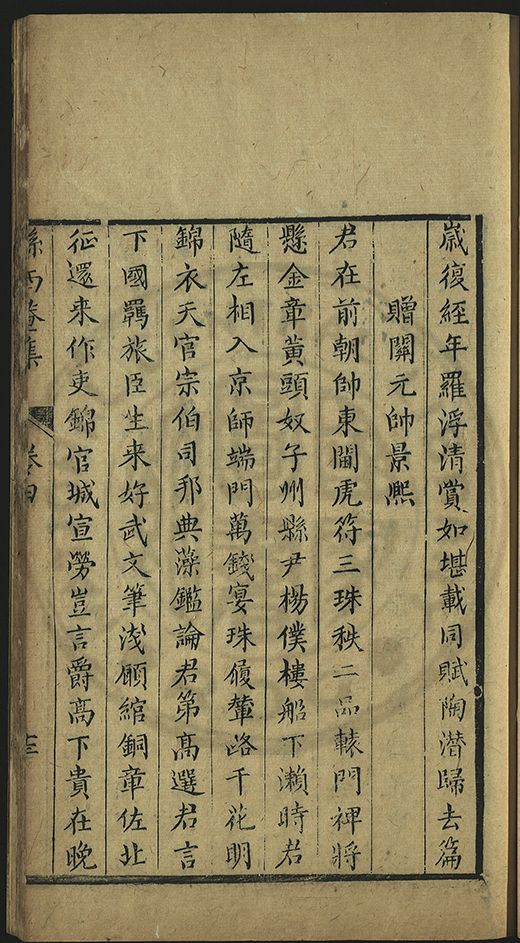 歲復經年羅浮清賞如堪載同賦陶潛歸去篇
贈關元帥景熈
君在前朝帥東閫虎符三珠秩二品轅門裨將
懸金章黄頭奴子州縣尹楊僕樓船下瀨時君
隨左相入京師端門萬錢宴珠履輦路千花明
錦衣天官宗伯司邦典藻鑑論君第高選君言
下國羈旅臣生来好武文筆淺願綰銅章佐北
征還来作吏錦官城宣勞豈言爵高下貴在晚
西菴集
卷四